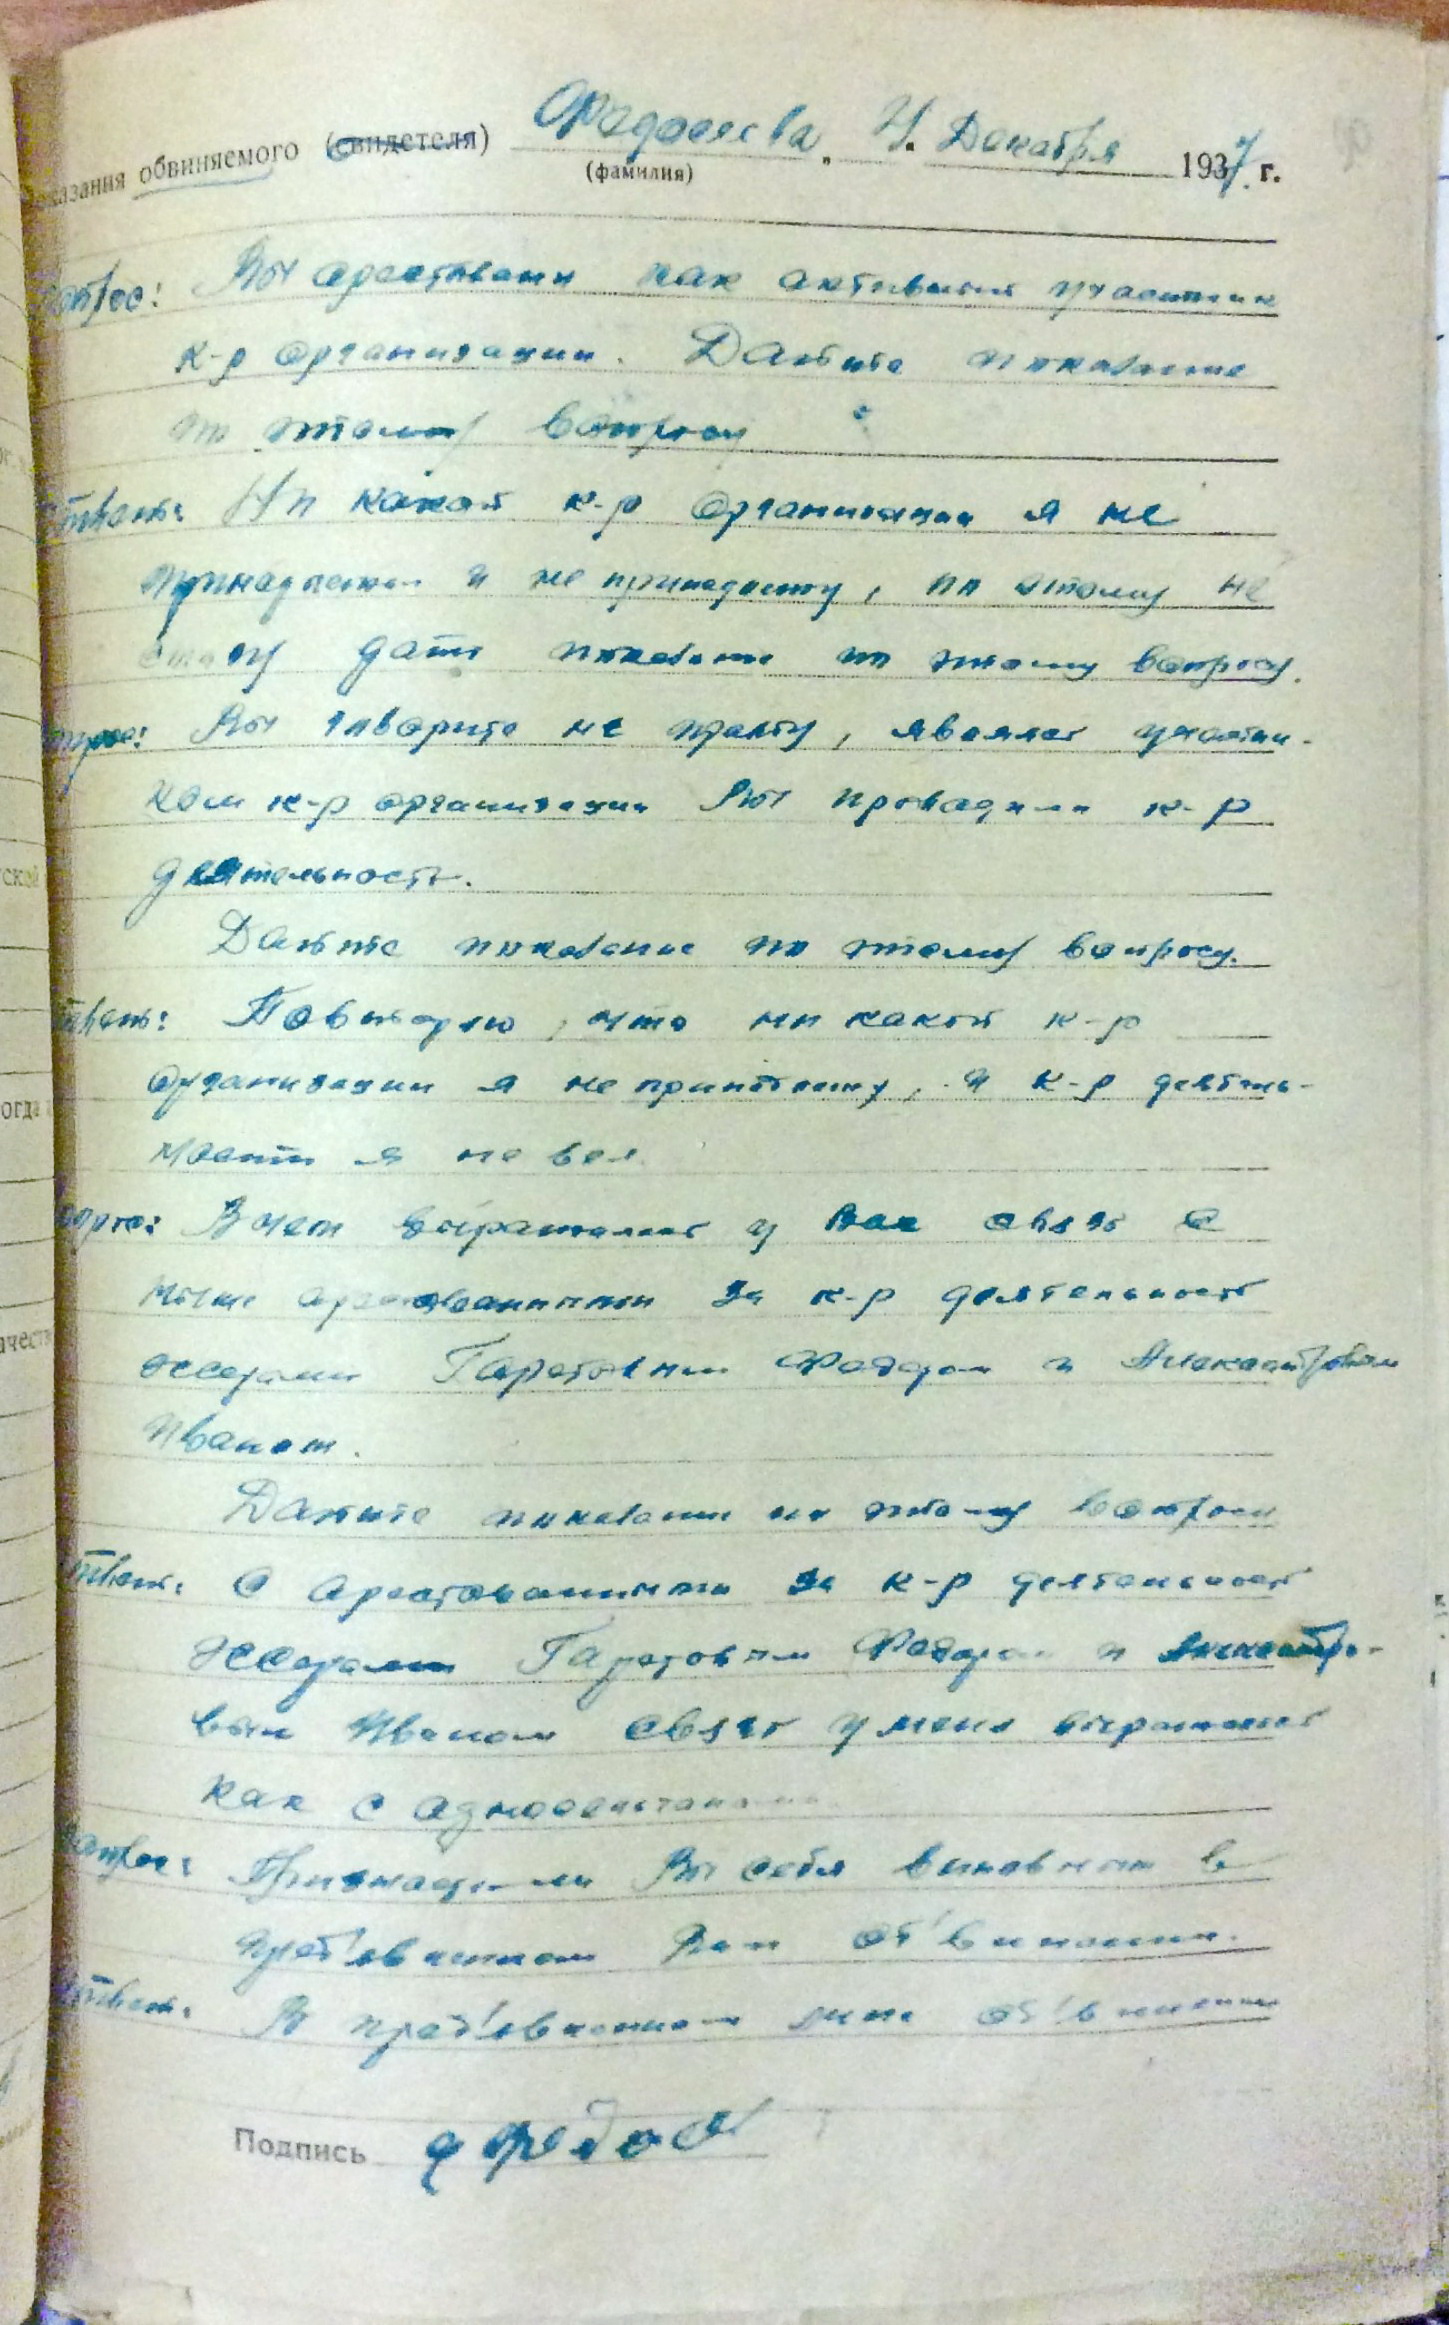 Показания обвиняемого (свидетеля) Федосеева И. Декабря 1937 г.
(фамилия)
Вопрос: Вы арестованы как активный участник
к-р организации. Дайте показание
по этому вопросу
Ответ: Ни какой к-р организации я не
принадлежал и не принадлежу, по этому не
могу дать показание по этому вопросу.
Вопрос: Вы говорите не правду, являяс участни-
ком к-р организации Вы проводили к-р
деятельность.
Дайте показание по этому вопросу.
Ответ: Повторяю, что ни какой к-р
организации я не принадлежу, и к-р деятель-
ности я не вел.
Вопрос: В чем выражалас у Вас связь с
ныне арестованными за к-р деятельность
эссерами Федором и
Иваном.
Дайте показание по этому вопросу
Ответ: С арестованными за к-р деятельность
эссерами Федором и
Иваном связь у меня выражалас
как с односельчанами.
Вопрос: Признаете ли Вы себя виновным в
пред'явленном Вам об'винении.
Ответ: В пред'явленном мне об'винении
Подпись Федос